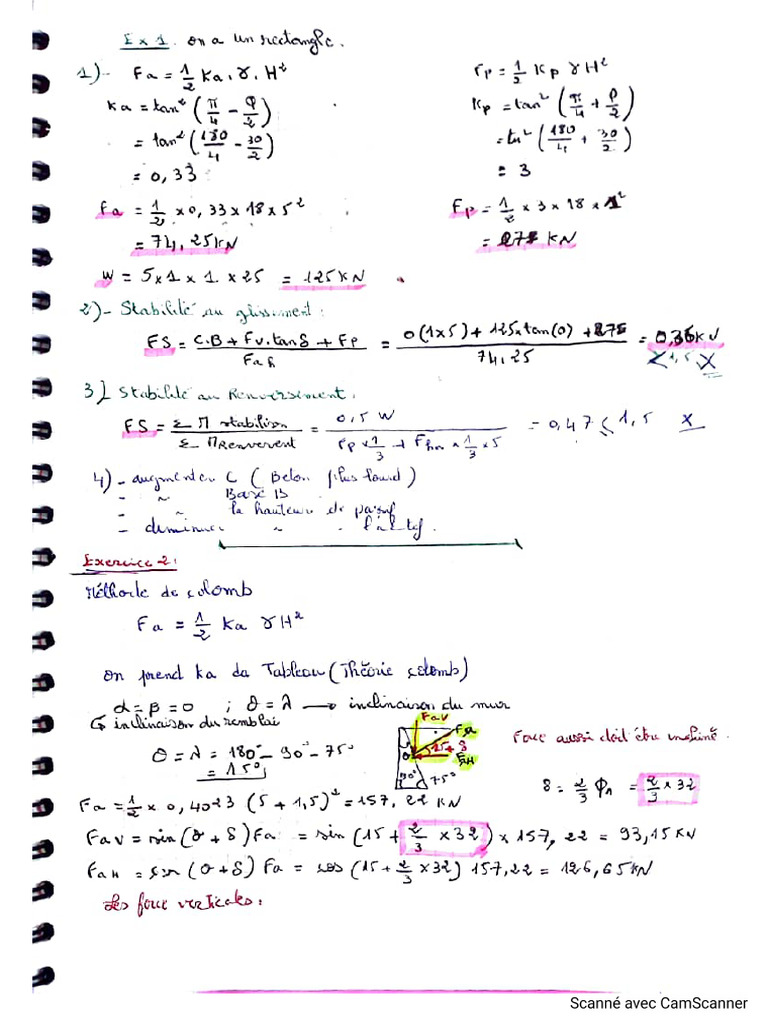 Ex 1. on a un rectangle.
1)- Fa = 1/2 Ka. γ. H²
Fp = 1/2 Kp γ H²
Ka = tan² (π/4 - φ/2)
Kp = tan² (π/4 + φ/2)
= tan² (180/4 - 30/2)
= tan² (180/4 + 30/2)
= 0,33
= 3
Fa = 1/2 × 0,33 × 18 × 5²
Fp = 1/2 × 3 × 18 × 1²
= 74,25 KN
= 27 KN
W = 5 × 1 × 1. × 25 = 125 KN
2)- Stabilité au glissement :
FS = (C.B + Fv.tanδ + Fp) / Fah = (0(1×5) + 125×tan(0) + 27) / 74,25 = 0,36
< 1,5 X
3) Stabilité au Renversement.
FS = Σ M stabilison / Σ M Renversent = 0,5 W / (Fp × 1/3 + Fha × 1/3 × 5) = 0,47 < 1,5 X
4)- augmenter C (Beton plus lourd)
- ~ Base B
- ~ la hauteur de
- diminuer ~ ~
Exercice 2:
Méthode de colomb
Fa = 1/2 Ka γ H²
on prend Ka da Tableau (Théorie colomb)
α = β = 0 ; θ = λ → inclinaison du mur
↳ inclinaison du remblai
Fav
Fa
15+δ
θ
FaH
90° 75°
θ = λ = 180° - 90° - 75°
= 15°
Force aussi doit être incliné.
δ = 2/3 ϕ = 2/3 × 32
Fa = 1/2 × 0,4023 (5 + 1,5)² = 157,22 KN
Fav = sin (θ + δ) Fa = sin (15 + 2/3 × 32) × 157,22 = 93,15 KN
FaH = cos (θ + δ) Fa = cos (15 + 2/3 × 32) 157,22 = 126,65 KN
Les force verticales :
Scanné avec CamScanner